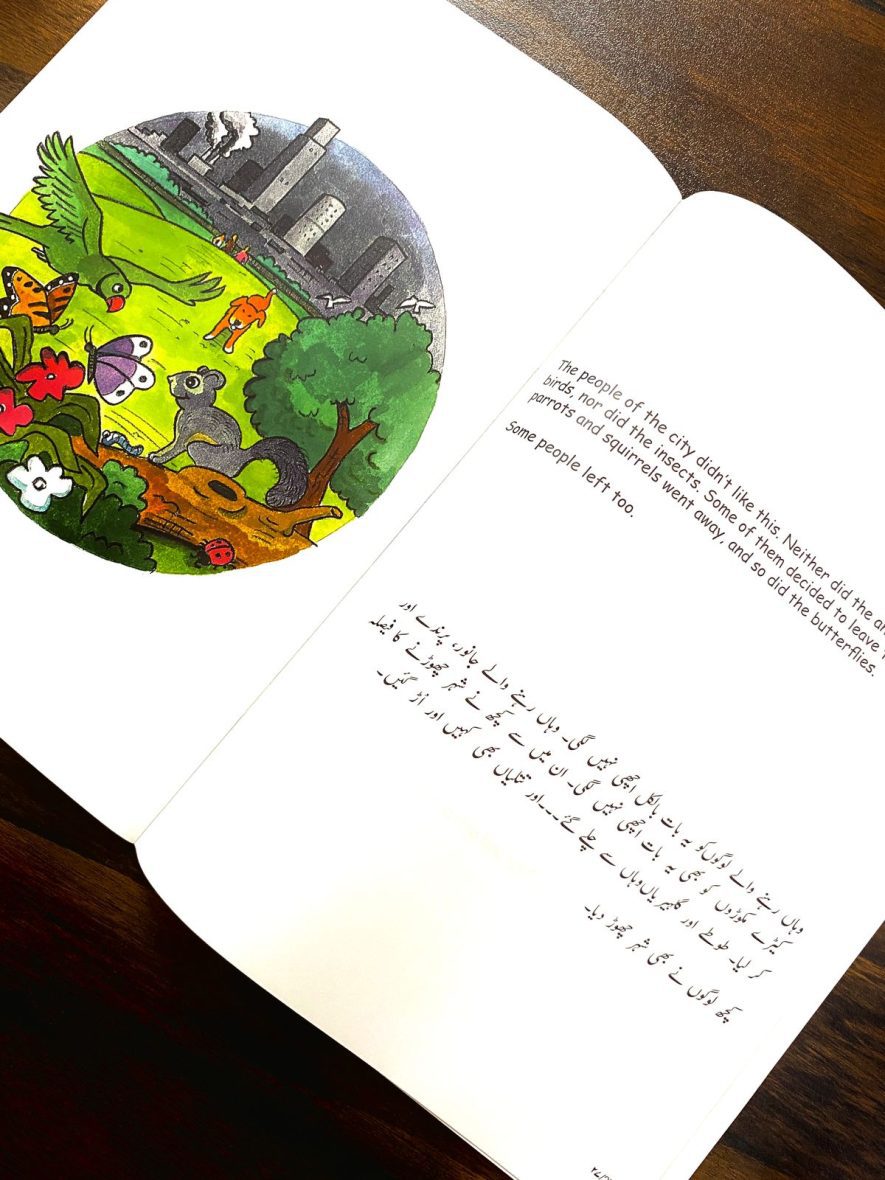 The people of the city didn't like this. Neither did the
birds, nor did the insects. Some of them decided to leave
parrots and squirrels went away, and so did the butterflies.
Some people left too.
وہاں رہنے والے لوگوں کو یہ بات بالکل اچھی نہیں لگی۔ وہاں رہنے والے جانور، پرندے اور
کیڑے مکوڑوں کو بھی یہ بات اچھی نہیں لگی۔ ان میں سے کچھ نے شہر چھوڑنے کا فیصلہ
کر لیا۔ طوطے اور گلہریاں وہاں سے چلے گئے۔۔۔اور تتلیاں بھی کہیں اور اڑ گئیں۔
کچھ لوگوں نے بھی شہر چھوڑ دیا۔